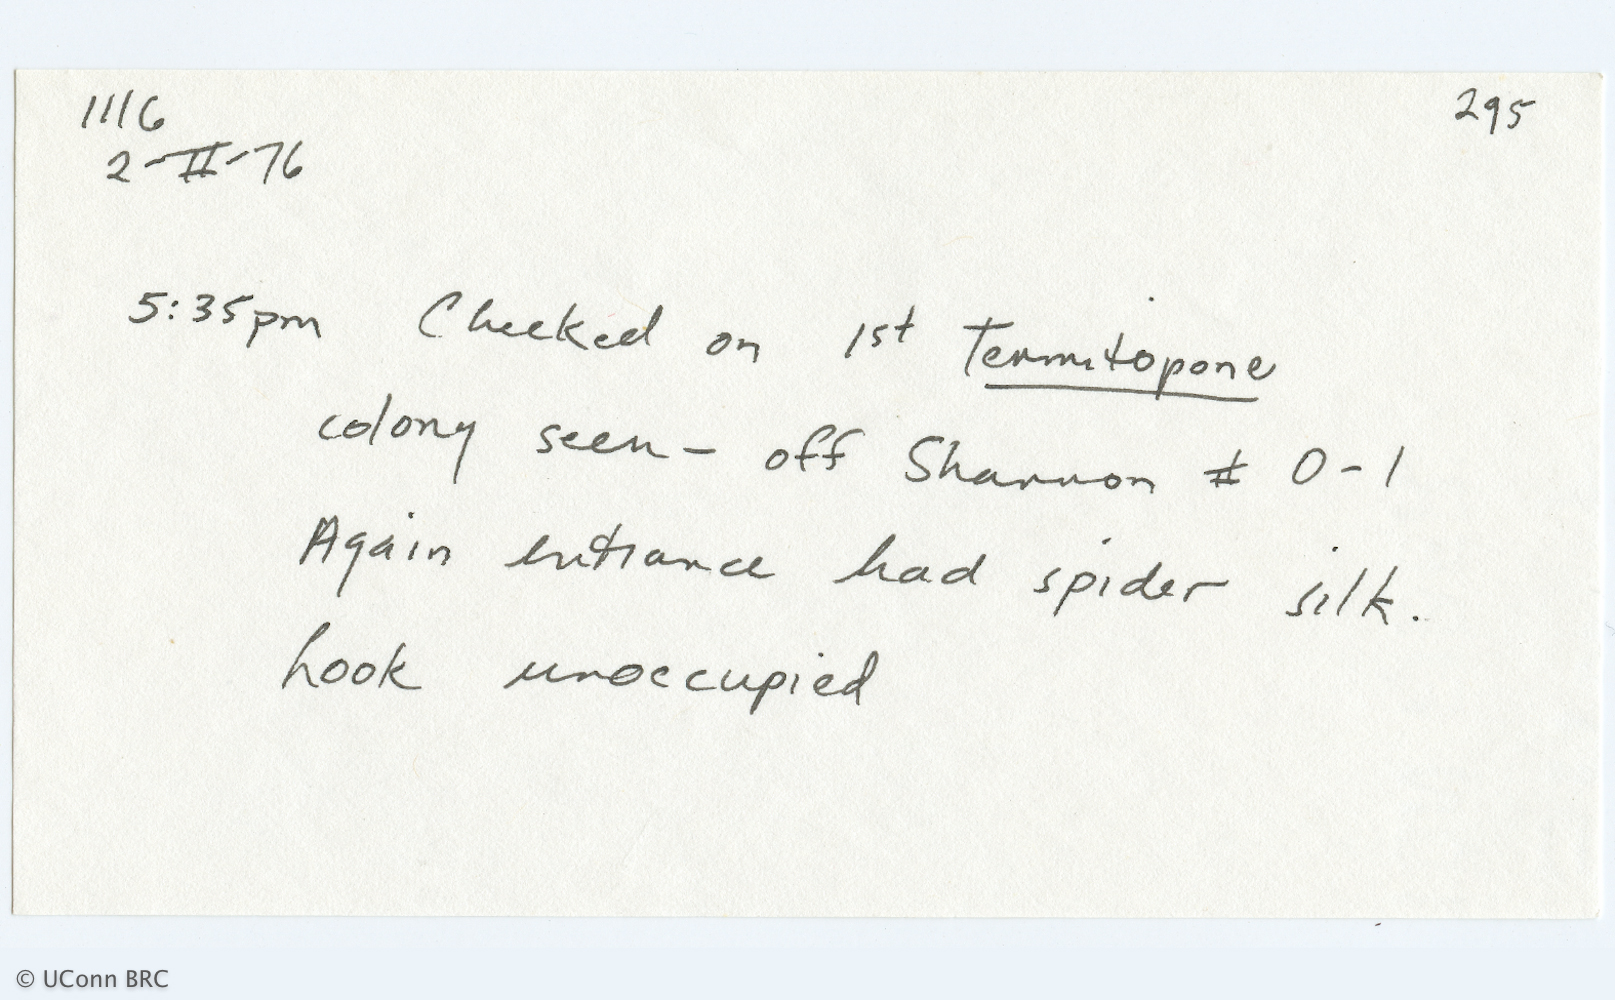 1116
295
2-II-76
5:35pm Checked on 1st Termitopone
colony seen - off Shannon # 0-1
Again entrance had spider silk.
Look unoccupied
© UConn BRC